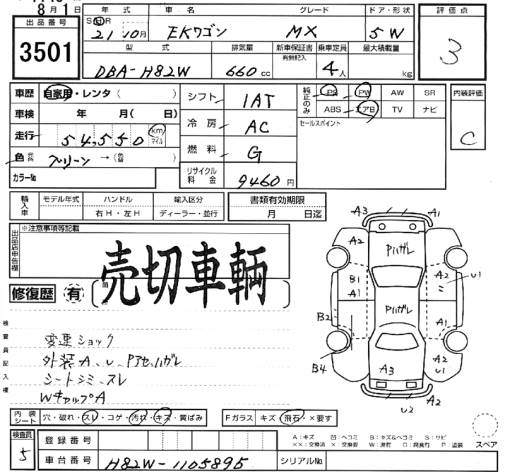 8月1日
出品番号
3501
年式 車名 グレード ドア・形状
21年10月 EKワゴン MX 5W
型式 排気量 新車保証書 乗車定員 最大積載量
有無記入
DBA-H82W 660cc 4人 kg
評価点
3
車歴 自家用・レンタ( )
車検 年 月( 日)
走行 54,550 km マイル
色 グリーン →(色替)
カラーNo
シフト 1AT
冷房 AC
燃料 G
リサイクル料金 9460円
純正のみ PS PW AW SR
ABS エアB TV ナビ
セールスポイント
内装評価
C
輸入車 モデル年式 ハンドル 輸入区分
右H・左H ディーラー・並行
書類有効期限
月 日迄
出品店申告欄
※注意事項等記載
売切車輌
修復歴 有
検査員記入欄
変速ショック
外装A、U、Pアセ、ハガレ
シートシミ、スレ
WキャップA
A3 A1
A2 Pハガレ A2
U1
B1
A1 Pハガレ
B2 A1
B4 A3 A2
U1
U2 A2
内装シート 穴・破れ・スレ・コゲ・汚れ・キズ・黄ばみ
Fガラス キズ・飛石・×要す
検査員
5
登録番号
車台番号 H82W-1105895 シリアルNo
A:キズ 凹:ヘコミ B:キズ&ヘコミ S:サビ
スペア